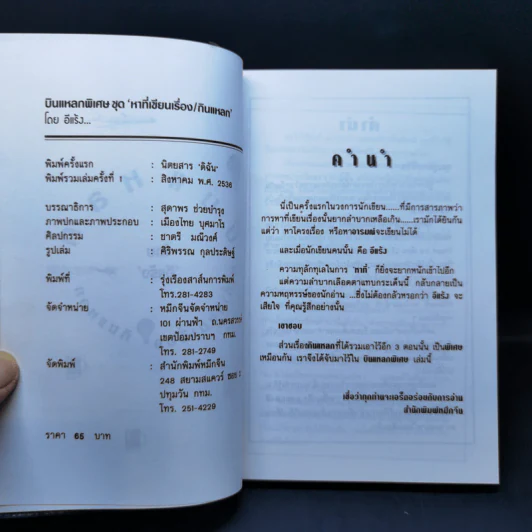 บินแหลกพิเศษ ชุด 'หาที่เขียนเรื่อง/กินแหลก'
โดย อีแร้ง...
พิมพ์ครั้งแรก : นิตยสาร 'ดิฉัน'
พิมพ์รวมเล่มครั้งที่ 1 : สิงหาคม พ.ศ. 2536
บรรณาธิการ : สุดาพร ช่วยบำรุง
ภาพปกและภาพประกอบ : เมืองไทย บุษมาโร
ศิลปกรรม : ชาตรี มณีวงค์
รูปเล่ม : ศิริพรรณ กุลประดิษฐ์
พิมพ์ที่ : รุ่งเรืองสาส์นการพิมพ์
โทร.281-4283
จัดจำหน่าย : หมึกจีนจัดจำหน่าย
101 ผ่านฟ้า ถ.นครสวรรค์
เขตป้อมปราบฯ กทม.
โทร. 281-2749
จัดพิมพ์ : สำนักพิมพ์หมึกจีน
248 สยามสแควร์
ปทุมวัน กทม.
โทร. 251-4229
ราคา 65 บาท
คำนำ
นี่เป็นครั้งแรกในวงการนักเขียน......ที่มีการสารภาพว่า
การหาที่เขียนเรื่องนั้นยากลำบากเหลือเกิน......เรามักได้ยินกัน
แต่ว่า หาโครงเรื่อง หรือหาอารมณ์จะเขียนไม่ได้
และเมื่อนักเขียนคนนั้น คือ อีแร้ง
ความทุลักทุเลในการ 'หาที่' ก็ยิ่งจะยากหนักเข้าไปอีก
แต่ความลำบากเลือดตาแทบกระเด็นนี้ กลับกลายเป็น
ความหฤหรรษ์ของนักอ่าน ...ซึ่งไม่ต้องกลัวหรอกว่า อีแร้ง จะ
เสียใจ ที่คุณรู้สึกอย่างนั้น
เขาชอบ
ส่วนเรื่องกินแหลกที่ได้รวมเอาไว้อีก 3 ตอนนั้น เป็นพิเศษ
เหมือนกัน เราจึงได้จับมาไว้ใน บินแหลกพิเศษ เล่มนี้
เชื่อว่าทุกท่านจะเอร็ดอร่อยกับการอ่าน
สำนักพิมพ์หมึกจีน